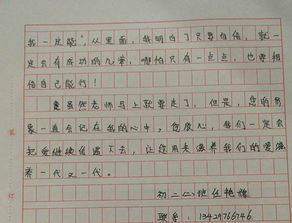 我一定能"。从里面，我明白了只要自信，就一
定会有成功的几率，哪怕只有一点点，也要相
信自己能行！
虽然您老师马上就要走了，但是，您的形
象一直会记在我的心中，您放心，我们一定会
把爱继续传递下去，让您用爱滋养我们的爱滋
养一代又一代。
初二(二)
联系：13429766746